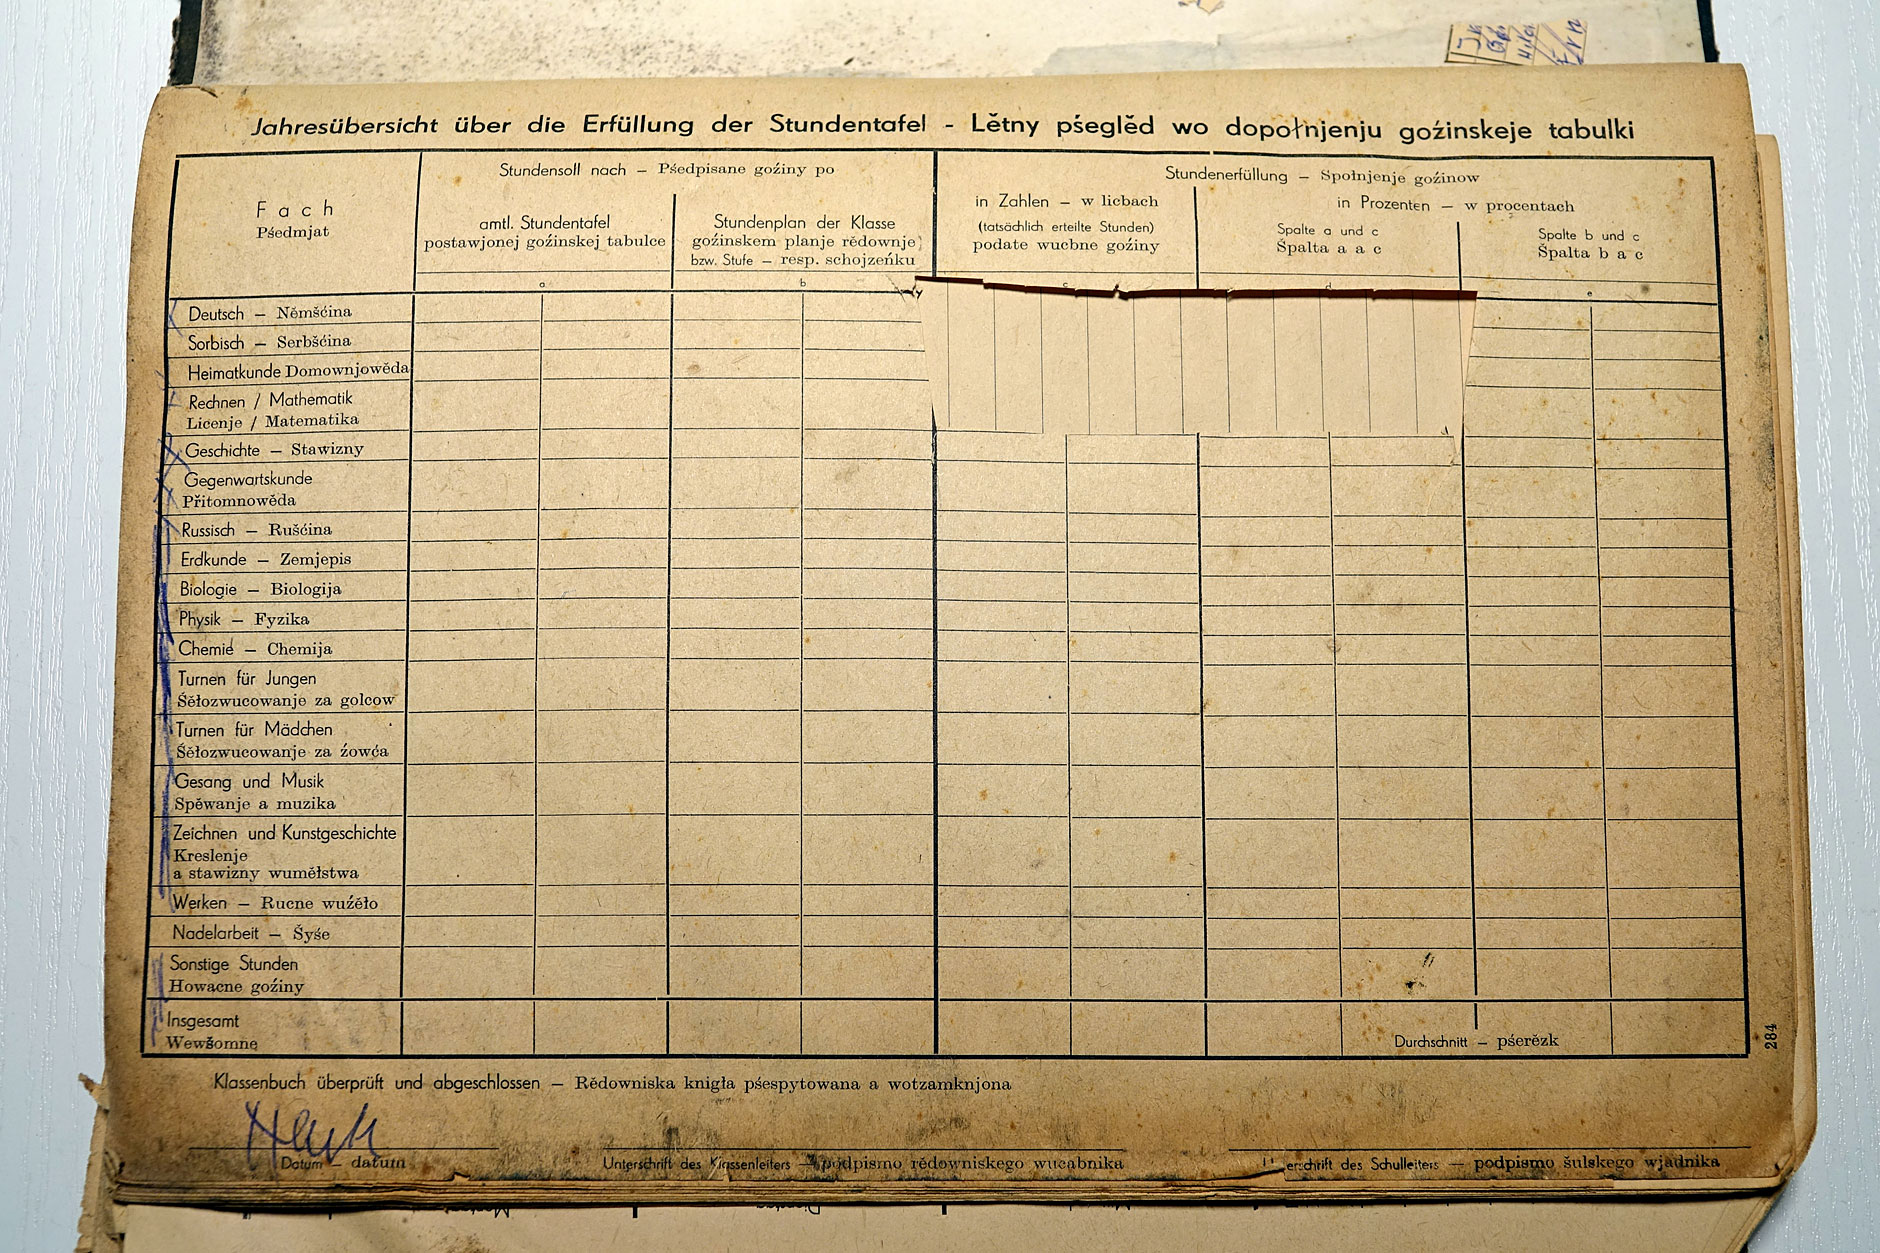 Jahresübersicht über die Erfüllung der Stundentafel - Lětny pśeglěd wo dopołnjenju goźinskeje tabulki
Fach
Pśedmjat
Stundensoll nach – Pśedpisane goźiny po
amtl. Stundentafel
postawjonej goźinskej tabulce
Stundenplan der Klasse
goźinskem planje rědownje
bzw. Stufe – resp. schojzeńku
Stundenerfüllung – Społnjenje goźinow
in Zahlen – w licbach
(tatsächlich erteilte Stunden)
podate wucbne goźiny
in Prozenten – w procentach
Spalte a und c
Špalta a a c
Spalte b und c
Špalta b a c
a b c d e
Deutsch – Němšćina
Sorbisch – Serbšćina
Heimatkunde Domownjowěda
Rechnen / Mathematik
Licenje / Matematika
Geschichte – Stawizny
Gegenwartskunde
Přitomnowěda
Russisch – Rušćina
Erdkunde – Zemjepis
Biologie – Biologija
Physik – Fyzika
Chemie – Chemija
Turnen für Jungen
Śěłozwucowanje za golcow
Turnen für Mädchen
Śěłozwucowanje za źowća
Gesang und Musik
Spěwanje a muzika
Zeichnen und Kunstgeschichte
Kreslenje
a stawizny wumělstwa
Werken – Rucne wuźěło
Nadelarbeit – Šyśe
Sonstige Stunden
Howacne goźiny
Insgesamt
Wewšomne
Durchschnitt – pśerězk
284
Klassenbuch überprüft und abgeschlossen – Rědowniska knigła pśespytowana a wotzamknjona
Datum – datum
Unterschrift des Klassenleiters – pódpismo rědowniskego wucabnika
erschrift des Schulleiters – podpismo šulskego wjadnika